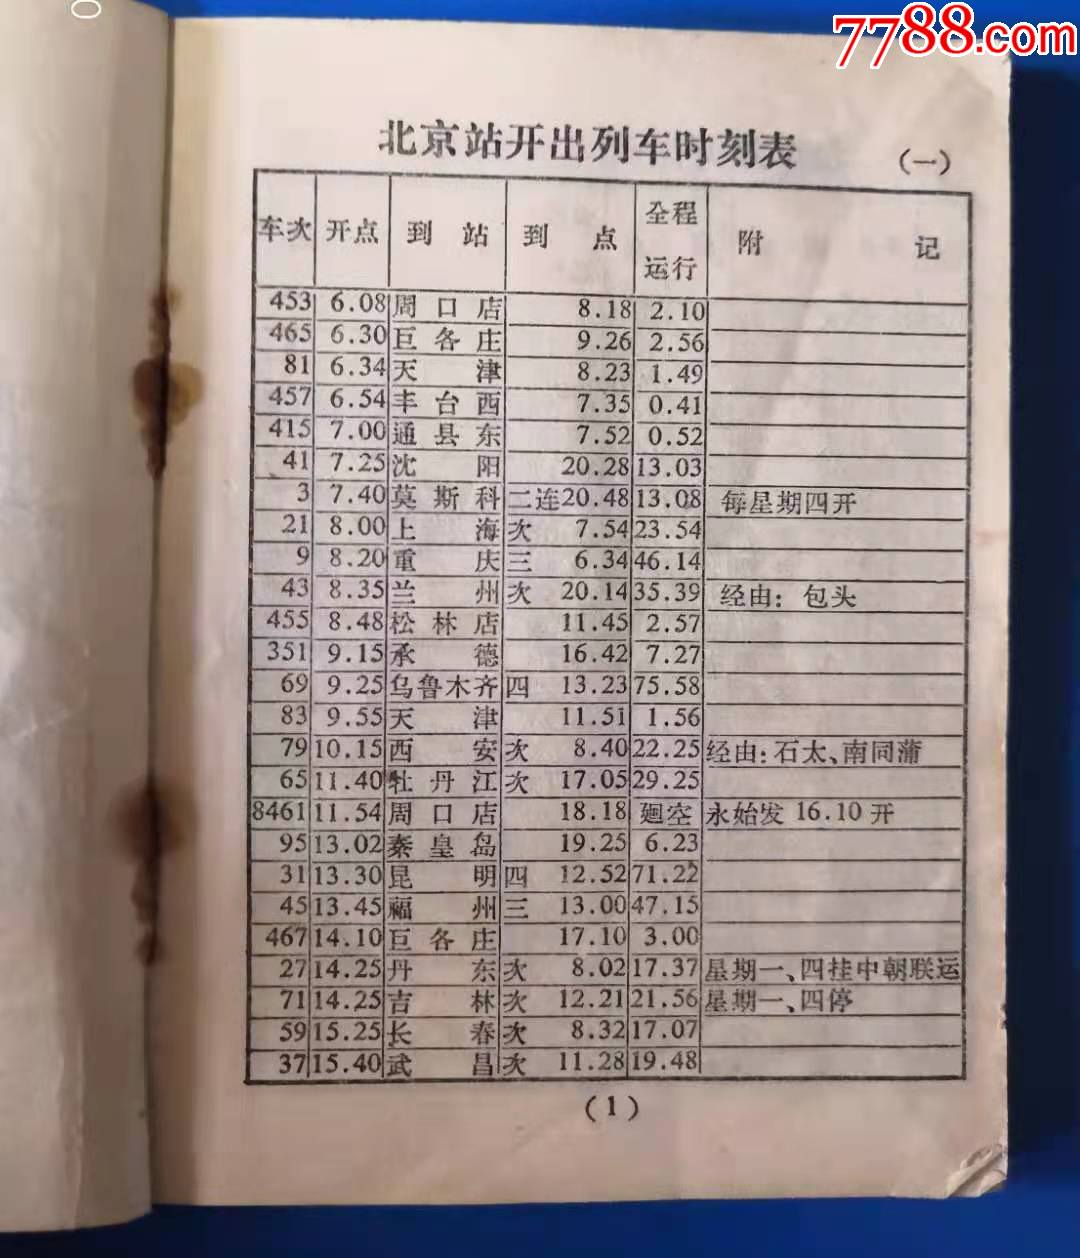 7788.com
北京站开出列车时刻表 (一)
车次 开点 到站 到点 全程运行 附记
453 6.08 周口店 8.18 2.10
465 6.30 巨各庄 9.26 2.56
81 6.34 天津 8.23 1.49
457 6.54 丰台西 7.35 0.41
415 7.00 通县东 7.52 0.52
41 7.25 沈阳 20.28 13.03
3 7.40 莫斯科 二连20.48 13.08 每星期四开
21 8.00 上海 次 7.54 23.54
9 8.20 重庆 三 6.34 46.14
43 8.35 兰州 次 20.14 35.39 经由：包头
455 8.48 松林店 11.45 2.57
351 9.15 承德 16.42 7.27
69 9.25 乌鲁木齐 四 13.23 75.58
83 9.55 天津 11.51 1.56
79 10.15 西安 次 8.40 22.25 经由：石太、南同蒲
65 11.40 牡丹江 次 17.05 29.25
8461 11.54 周口店 18.18 廻空 永始发 16.10 开
95 13.02 秦皇岛 19.25 6.23
31 13.30 昆明 四 12.52 71.22
45 13.45 福州 三 13.00 47.15
467 14.10 巨各庄 17.10 3.00
27 14.25 丹东 次 8.02 17.37 星期一、四挂中朝联运
71 14.25 吉林 次 12.21 21.56 星期一、四停
59 15.25 长春 次 8.32 17.07
37 15.40 武昌 次 11.28 19.48
(1)